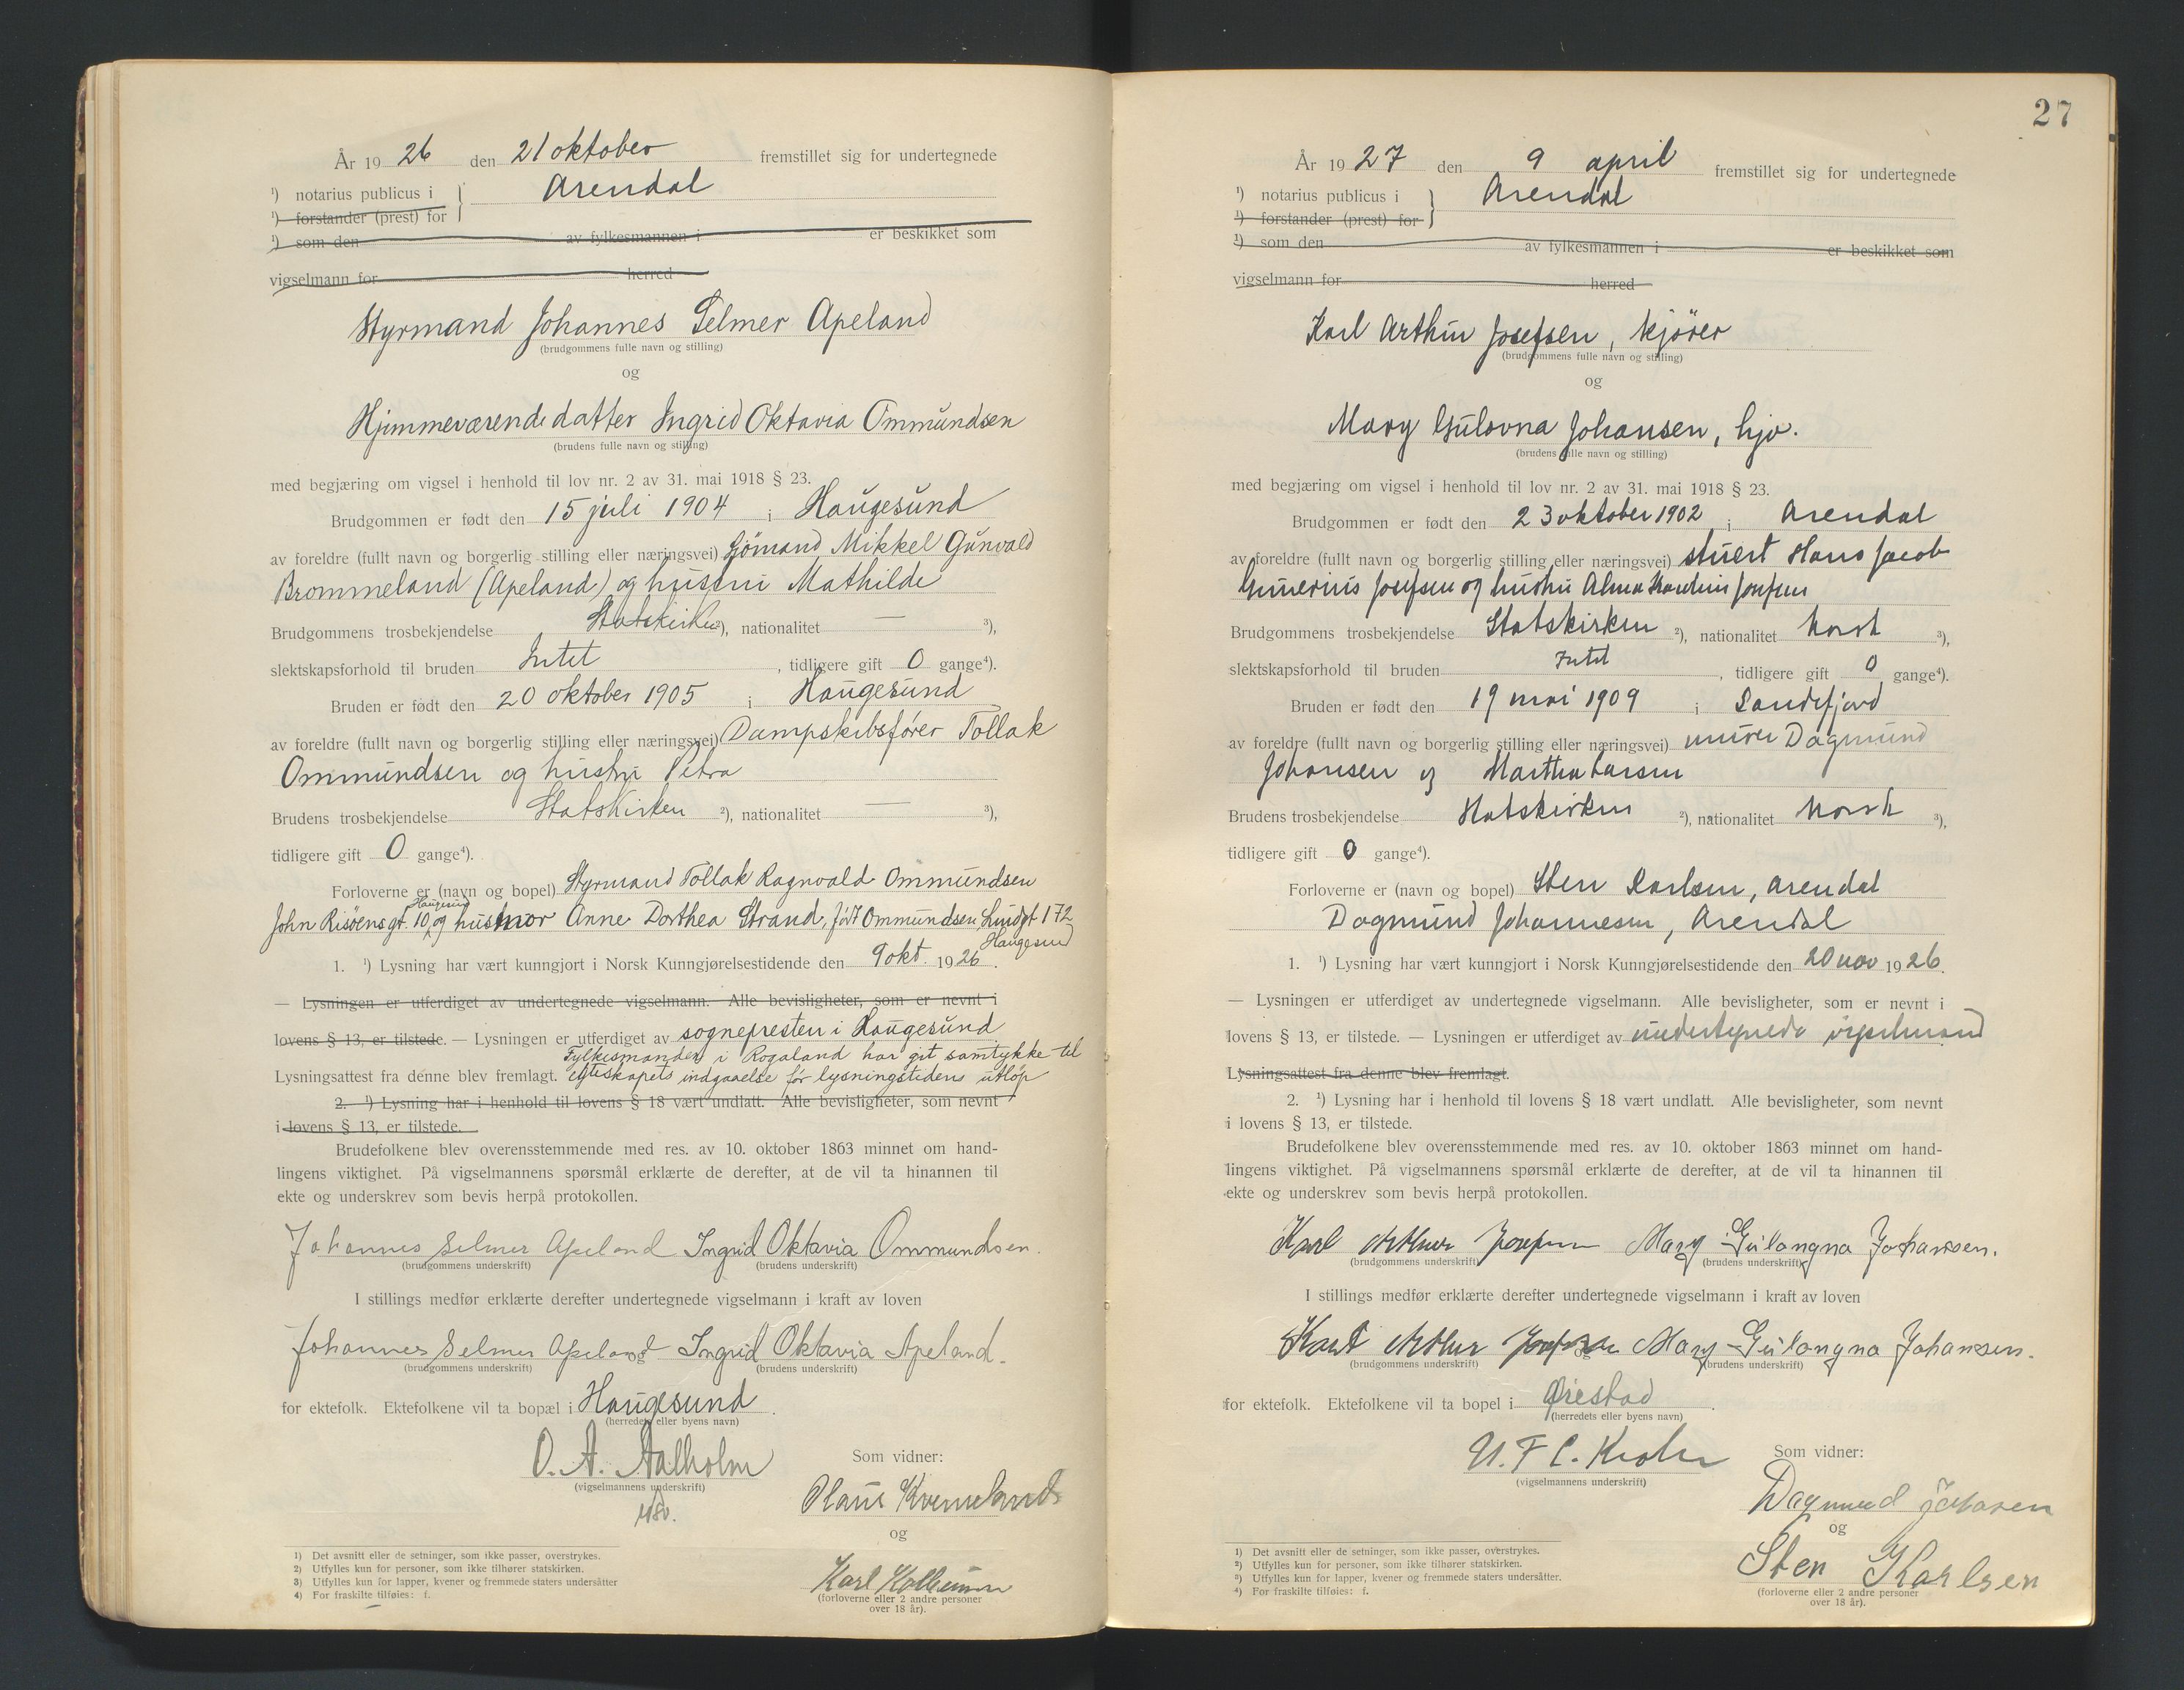 År 1926 den 21 oktober fremstillet sig for undertegnede
¹) notarius publicus i } Arendal
¹) forstander (prest) for
¹) som den av fylkesmannen i er beskikket som
vigselmann for herred
Styrmand Johannes Selmer Apeland
(brudgommens fulle navn og stilling)
og
Hjemmeværende datter Ingrid Oktavia Ommundsen
(brudens fulle navn og stilling)
med begjæring om vigsel i henhold til lov nr. 2 av 31. mai 1918 § 23.
Brudgommen er født den 15 juli 1904 i Haugesund
av foreldre (fullt navn og borgerlig stilling eller næringsvei) Sjömand Mikkel Gunvald
Brommeland (Apeland) og hustru Mathilde
Brudgommens trosbekjendelse Statskirken ²), nationalitet — ³),
slektskapsforhold til bruden Intet , tidligere gift 0 gange⁴).
Bruden er født den 20 oktober 1905 i Haugesund
av foreldre (fullt navn og borgerlig stilling eller næringsvei) Dampskibsfører Tollak
Ommundsen og hustru Petra
Brudens trosbekjendelse Statskirken ²), nationalitet — ³),
tidligere gift 0 gange⁴).
Forloverne er (navn og bopel) Styrmand Tollak Ragnvald Ommundsen
John Risöensgt. 10, Haugesund og husmor Anne Dorthea Strand, født Ommundsen, Lundgt 172
Haugesund
1. ¹) Lysning har vært kunngjort i Norsk Kunngjørelsestidende den 9 okt. 1926.
— Lysningen er utferdiget av undertegnede vigselmann. Alle bevisligheter, som er nevnt i
lovens § 13, er tilstede. — Lysningen er utferdiget av sognepresten i Haugesund
Fylkesmanden i Rogaland har git samtykke til
Lysningsattest fra denne blev fremlagt. egteskapets indgaaelse før lysningstidens utløp
2. ¹) Lysning har i henhold til lovens § 18 vært undlatt. Alle bevisligheter, som nevnt
i lovens § 13, er tilstede.
Brudefolkene blev overensstemmende med res. av 10. oktober 1863 minnet om hand-
lingens viktighet. På vigselmannens spørsmål erklærte de derefter, at de vil ta hinannen til
ekte og underskrev som bevis herpå protokollen.
Johannes Selmer Apeland Ingrid Oktavia Ommundsen.
(brudgommens underskrift) (brudens underskrift)
I stillings medfør erklærte derefter undertegnede vigselmann i kraft av loven
Johannes Selmer Apeland og Ingrid Oktavia Apeland.
(brudgommens underskrift) (brudens underskrift)
for ektefolk. Ektefolkene vil ta bopæl i Haugesund.
(herredets eller byens navn)
O. A. Aalholm Som vidner:
(vigselmannens underskrift)
Olaus
og
Karl
(forloverne eller 2 andre personer
over 18 år).
1) Det avsnitt eller de setninger, som ikke passer, overstrykes.
2) Utfylles kun for personer, som ikke tilhører statskirken.
3) Utfylles kun for lapper, kvener og fremmede staters undersåtter
4) For fraskilte tilføies: f.
27
År 1927 den 9 april fremstillet sig for undertegnede
¹) notarius publicus i } Arendal
¹) forstander (prest) for
¹) som den av fylkesmannen i er beskikket som
vigselmann for herred
Karl Arthur Josefsen, kjører
(brudgommens fulle navn og stilling)
og
Mary Gulovna Johansen, hjv.
(brudens fulle navn og stilling)
med begjæring om vigsel i henhold til lov nr. 2 av 31. mai 1918 § 23.
Brudgommen er født den 23 oktober 1902 i Arendal
av foreldre (fullt navn og borgerlig stilling eller næringsvei) stuert Hans Jacob
Gunerius Josefsen og hustru Alma Josefsen
Brudgommens trosbekjendelse Statskirken ²), nationalitet Norsk ³),
slektskapsforhold til bruden Intet , tidligere gift 0 gange⁴).
Bruden er født den 19 mai 1909 i Sandefjord
av foreldre (fullt navn og borgerlig stilling eller næringsvei) murer Dagmund
Johansen og Martha Larsen
Brudens trosbekjendelse Statskirken ²), nationalitet Norsk ³),
tidligere gift 0 gange⁴).
Forloverne er (navn og bopel) Sten Karlsen, Arendal
Dagmund Johannesen, Arendal
1. ¹) Lysning har vært kunngjort i Norsk Kunngjørelsestidende den 20 nov 1926.
— Lysningen er utferdiget av undertegnede vigselmann. Alle bevisligheter, som er nevnt i
lovens § 13, er tilstede. — Lysningen er utferdiget av undertegnede vigselmand
Lysningsattest fra denne blev fremlagt.
2. ¹) Lysning har i henhold til lovens § 18 vært undlatt. Alle bevisligheter, som nevnt
i lovens § 13, er tilstede.
Brudefolkene blev overensstemmende med res. av 10. oktober 1863 minnet om hand-
lingens viktighet. På vigselmannens spørsmål erklærte de derefter, at de vil ta hinannen til
ekte og underskrev som bevis herpå protokollen.
Karl Arthur Josefsen Mary Gulongna Johanssen.
(brudgommens underskrift) (brudens underskrift)
I stillings medfør erklærte derefter undertegnede vigselmann i kraft av loven
Karl Arthur Josefsen og Mary Gulongna Johanssen.
(brudgommens underskrift) (brudens underskrift)
for ektefolk. Ektefolkene vil ta bopel i Øiestad.
(herredets eller byens navn)
U. F. C. Krohn Som vidner:
(vigselmannens underskrift)
Dagmund Johasen
og
Sten Karlsen
(forloverne eller 2 andre personer
over 18 år).
1) Det avsnitt eller de setninger, som ikke passer, overstrykes.
2) Utfylles kun for personer, som ikke tilhører statskirken.
3) Utfylles kun for lapper, kvener og fremmede staters undersåtter.
4) For fraskilte tilføies: f.